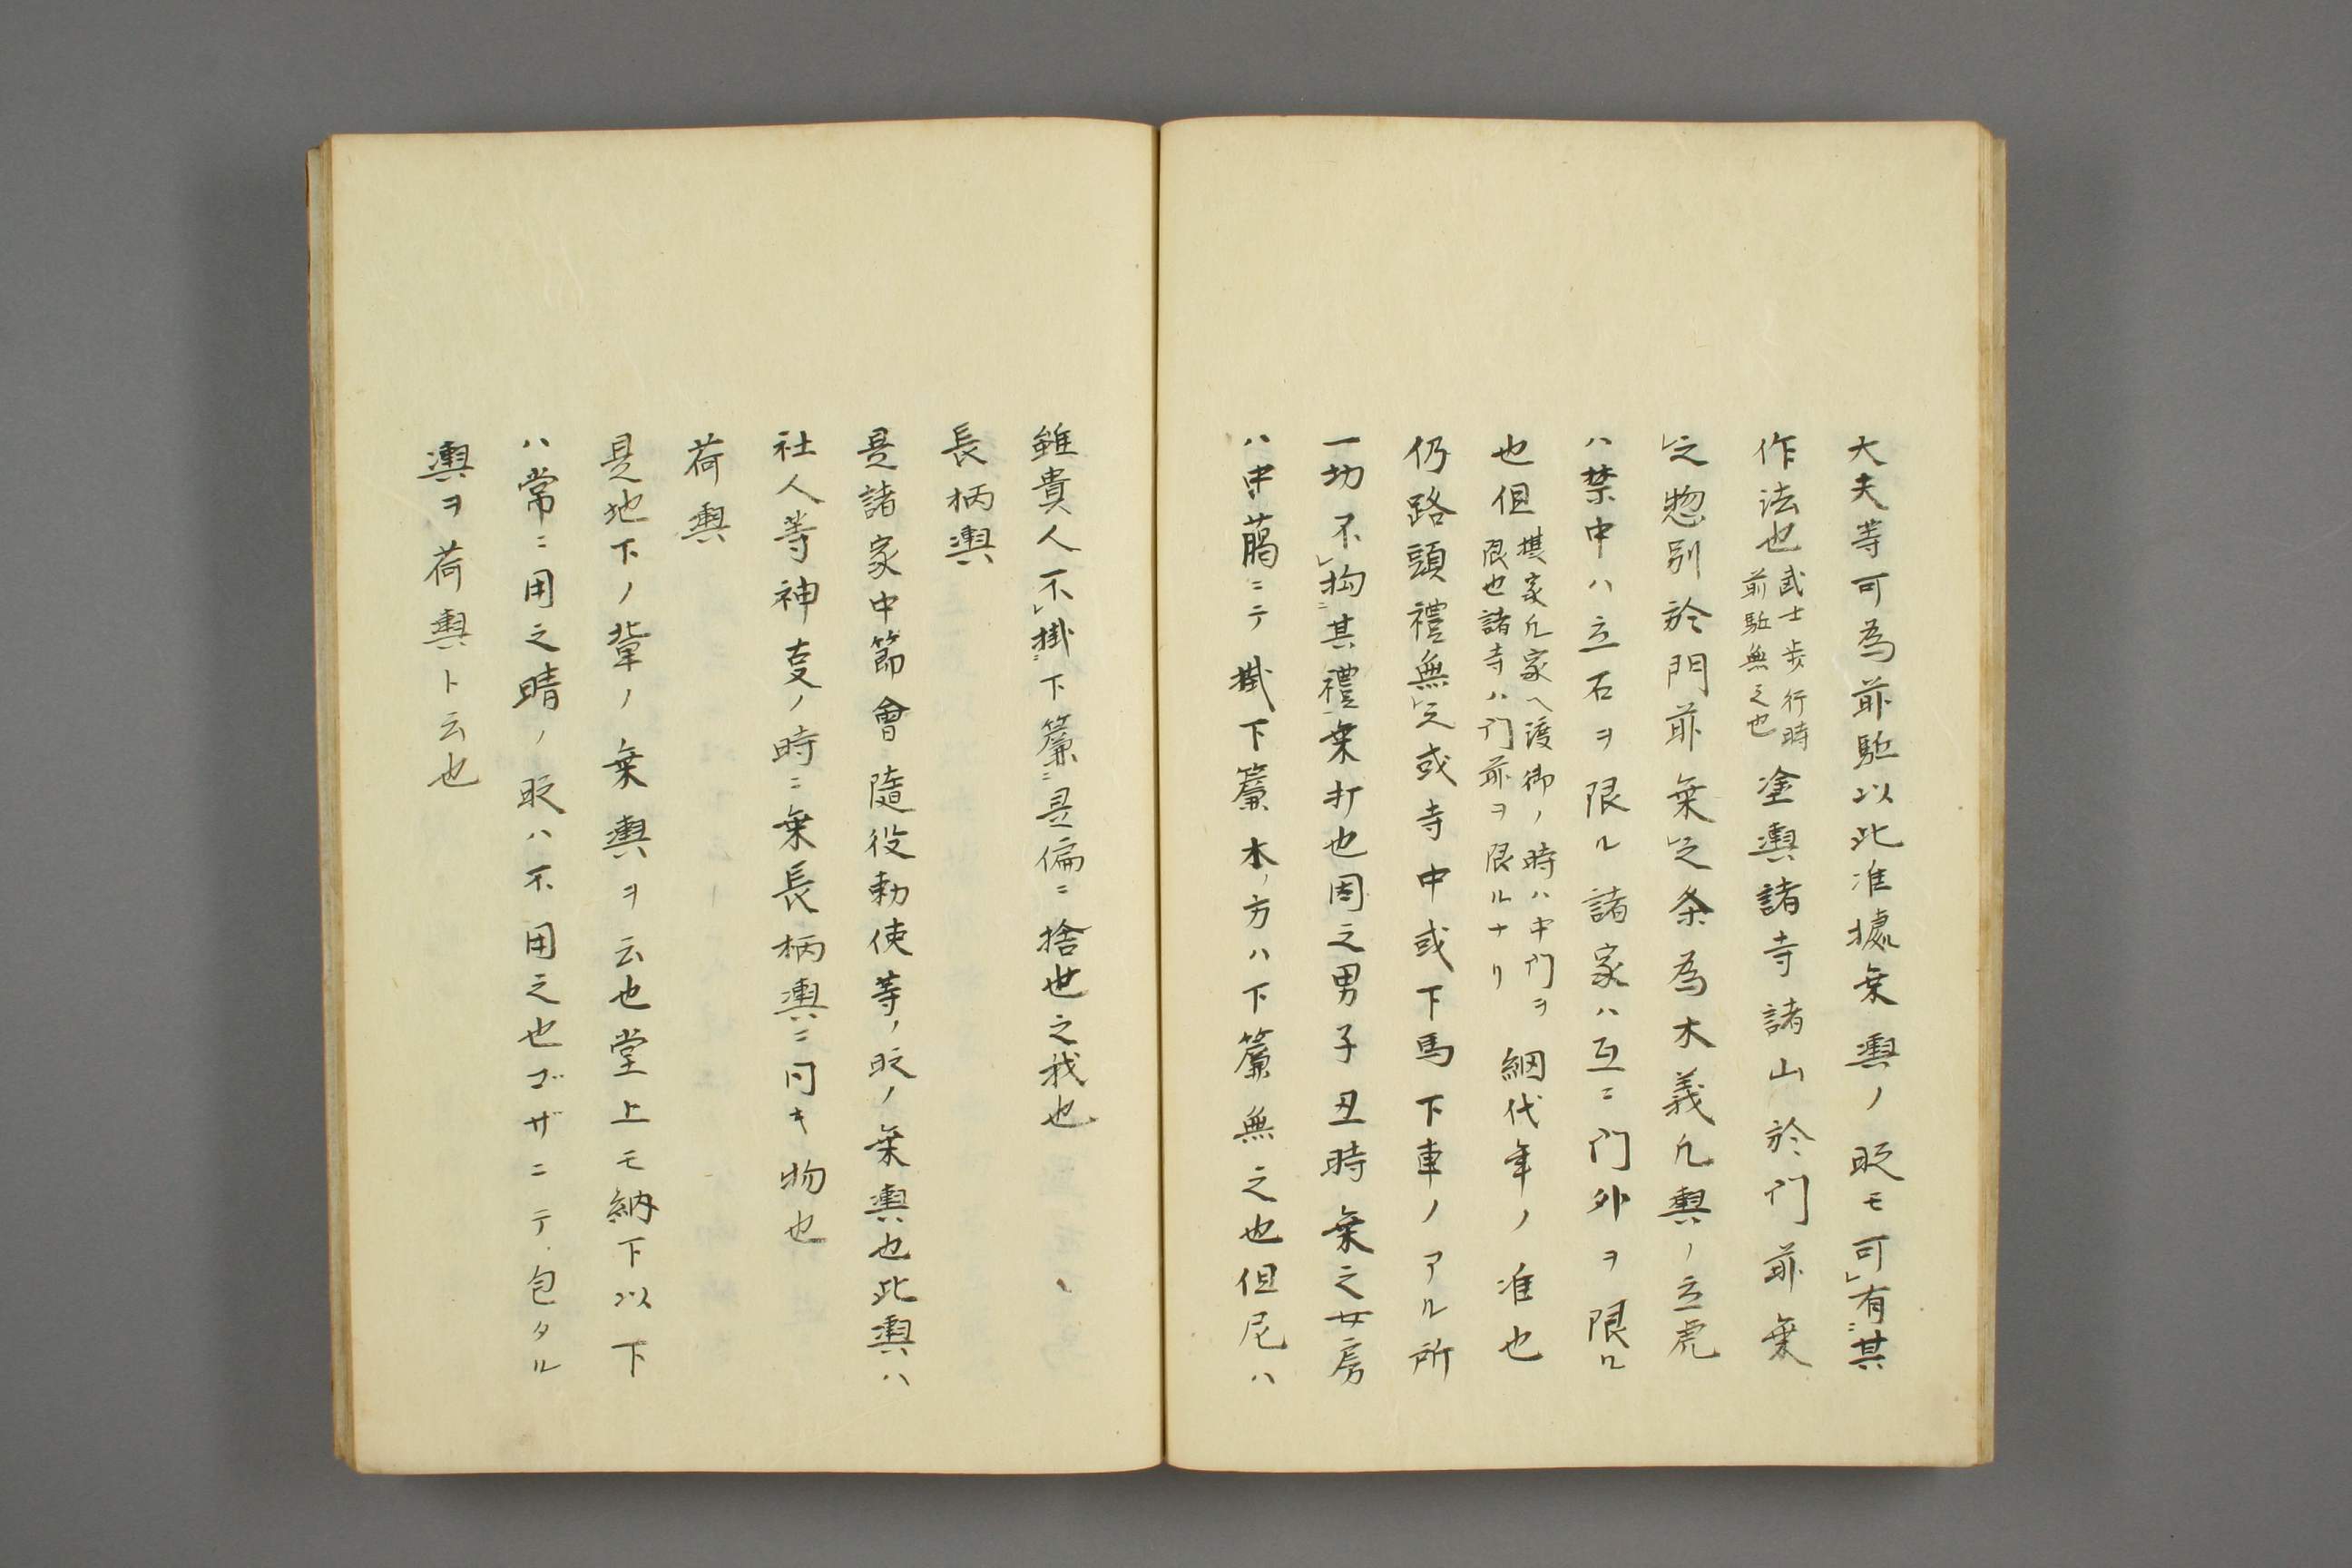 大夫等可為前駈以此准據乗輿ノ時モ可レ有二其
作法也武士歩行時
前駈無之也
塗輿諸寺諸山於門前乗
レ之惣別於門前乗レ之条為木義凡輿ノ立處
ハ禁中ハ立石ヲ限ル諸家ハ互ニ門外ヲ限ル
也但摂家凡家ヘ渡御ノ時ハ中門ヲ
限也諸寺ハ門前ヲ限ルナリ
網代車ノ准也
仍路頭禮無レ之或寺中或下馬下車ノアル所
一切不レ拘二其禮一乗打也因之男子丑時乗之女房
ハ中﨟ニテ掛下簾木ノ方ハ下簾無之也但尼ハ
雖貴人不レ掛二下簾一是偏ニ捨世之我也
長柄輿
是諸家中節會隨役勅使等ノ時ノ乗輿也此輿ハ
社人等神支ノ時ニ乗長柄輿ニ同キ物也
荷輿
是地下ノ輩ノ乗輿ヲ云也堂上モ納下以下
ハ常ニ用之晴ノ時ハ不用之也ゴザニテ包タル
輿ヲ荷輿ト云也